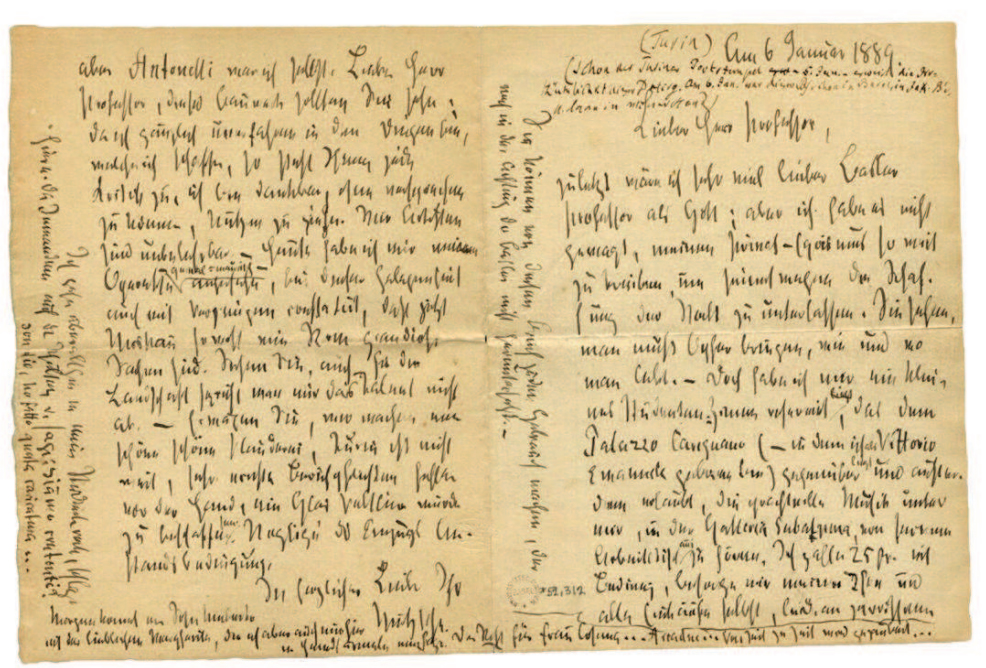 aber Antonelli war ich selbst. Lieber Herr
Professor, dieses Bauwerk sollten Sie sehn:
da ich gänzlich unerfahren in den Dingen bin,
welche ich schaffe, so steht Ihnen jede
Kritik zu, ich bin dankbar, ohne versprechen
zu können, Nutzen zu ziehen. Wir Artisten
sind unbelehrbar. — Heute habe ich mir meine
Operette — genial-maurisch — angesehn, bei dieser Gelegenheit
auch mit Vergnügen constatirt, daß jetzt
Moskau sowohl wie Rom grandiose
Sachen sind. Sehen Sie, auch für die
Landschaft spricht man mir das Talent nicht
ab. — Erwägen Sie, wir machen eine
schöne schöne Plauderei, Turin ist nicht
weit, sehr ernste Berufspflichten fehlen
vor der Hand, ein Glas Veltliner würde
zu beschaffen sein. Negligé des Anzugs An-
standsbedingung.
In herzlicher Liebe Ihr
Nietzsche
Morgen kommt mein Sohn Umberto
mit der lieblichen Margherita, die ich aber auch nur hier
in Hemdsärmeln empfange. Der Rest für Frau Cosima... Ariadne... Von Zeit zu Zeit wird gezaubert...
Ich gehe überall hin in meinem Studentenrock, schlage
hier und da Jemandem auf die Schulter und sage: siamo contenti?
son dio, ho fatto questa caricatura...
Sie können von diesem Brief jeden Gebrauch machen, der
mich in der Achtung der Basler nicht heruntersetzt. —
(Turin) Am 6 Januar 1889.
(Schon der Turiner Poststempel 5. Jan.
Am 6. Jan. war
Lieber Herr Professor,
zuletzt wäre ich sehr viel lieber Basler
Professor als Gott; aber ich habe es nicht
gewagt, meinen Privat-Egoismus so weit
zu treiben, um seinetwegen die Schaf-
fung der Welt zu unterlassen. Sie sehen,
man muß Opfer bringen, wie und wo
man lebt. — Doch habe ich mir ein klei-
nes Studenten-Zimmer reservirt, das dem
Palazzo Carignano (— in dem ich als Vittorio
Emanuele geboren bin) gegenüber liegt und außer-
dem erlaubt, die prachtvolle Musik unter
mir, in der Galleria Subalpina, von seinem
Arbeitstisch aus zu hören. Ich zahle 25 fr. mit
Bedienung, besorge mir meinen Thee und
alle Einkäufe selbst, leide an zerrissenen
52,312